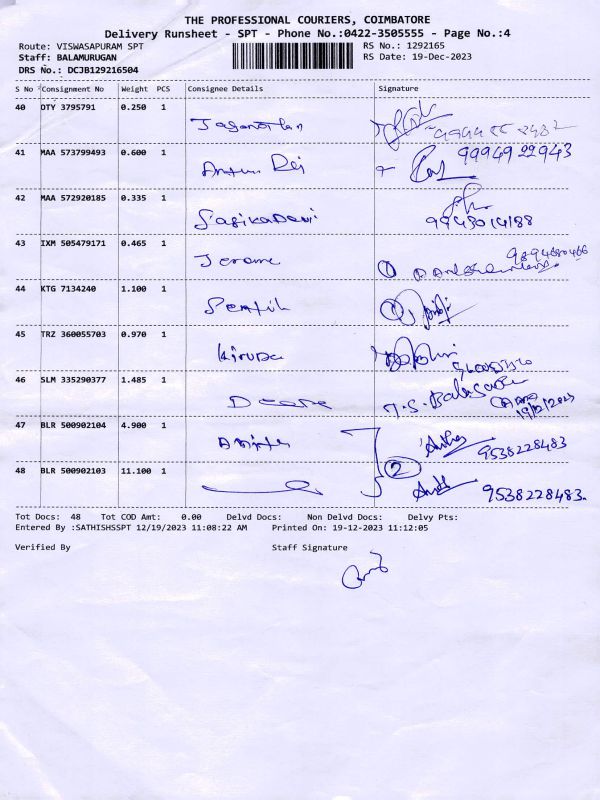 THE PROFESSIONAL COURIERS, COIMBATORE
Delivery Runsheet - SPT - Phone No.:0422-3505555 - Page No.:4
Route: VISWASAPURAM SPT RS No.: 1292165
Staff: BALAMURUGAN RS Date: 19-Dec-2023
DRS No.: DCJB129216504
S No Consignment No Weight PCS Consignee Details Signature
40 DTY 3795791 0.250 1
41 MAA 573799493 0.600 1 99949 22943
42 MAA 572920185 0.335 1 9943014188
43 IXM 505479171 0.465 1 Jerome
44 KTG 7134240 1.100 1 Senthil
45 TRZ 360055703 0.970 1 Kiruba
46 SLM 335290377 1.485 1 19/12/2023
47 BLR 500902104 4.900 1 9538228483
48 BLR 500902103 11.100 1 2 9538228483
Tot Docs: 48 Tot COD Amt: 0.00 Delvd Docs: Non Delvd Docs: Delvy Pts:
Entered By :SATHISHSSPT 12/19/2023 11:08:22 AM Printed On: 19-12-2023 11:12:05
Verified By Staff Signature